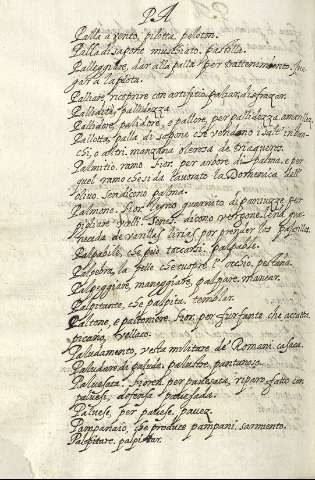 PA
Palla a vento, pilotta peloton.
Palla di sapone muschiato, pastilla.
Palleggiare, dar alla palla per trattenimento, jugar a la pelota.
Palliare, ricoprire con artificio, paliar, disfraçar.
Pallidezza, palidezza
Pallidore, palidore, e pallore, per pallidezza, amarillez,
Pallotta, palla di sapone che vendono i salt' in ban-
chi, o altri, manzana olerosa de triaqueros.
Palmitio, ramo, Fior. per arbore di palma, e per
quel ramo che si dà lavorato la Domenica dell'
olivo, sen dicono palma.
Palmone, Fior. legno guarnito di paniuzze per
pigliare uccelli. Senes. dicono vergone,
de varillas para prender los paxarillos.
Palpabile, che può toccarsi, palpable.
Palpebra, la pelle che cuopre l'occhio, pestaña.
Palpeggiare, maneggiare, palpare, manear.
Palpitante, che palpita, temblar.
Paltone, e paltoniere Fior. per furfante che accatta
picaro, vellaco.
Paludamento, vesta militare de' Romani, casaca.
Paludare di palude, palustre, pantanoso.
Paluesata, Fioren. per pauesata, riparo fatto con
paluesi, defensa pauesada.
Paluese, per pauese, pavez.
Pampanaio, che produce pampani, sarmiento.
Palpitare, palpitar.